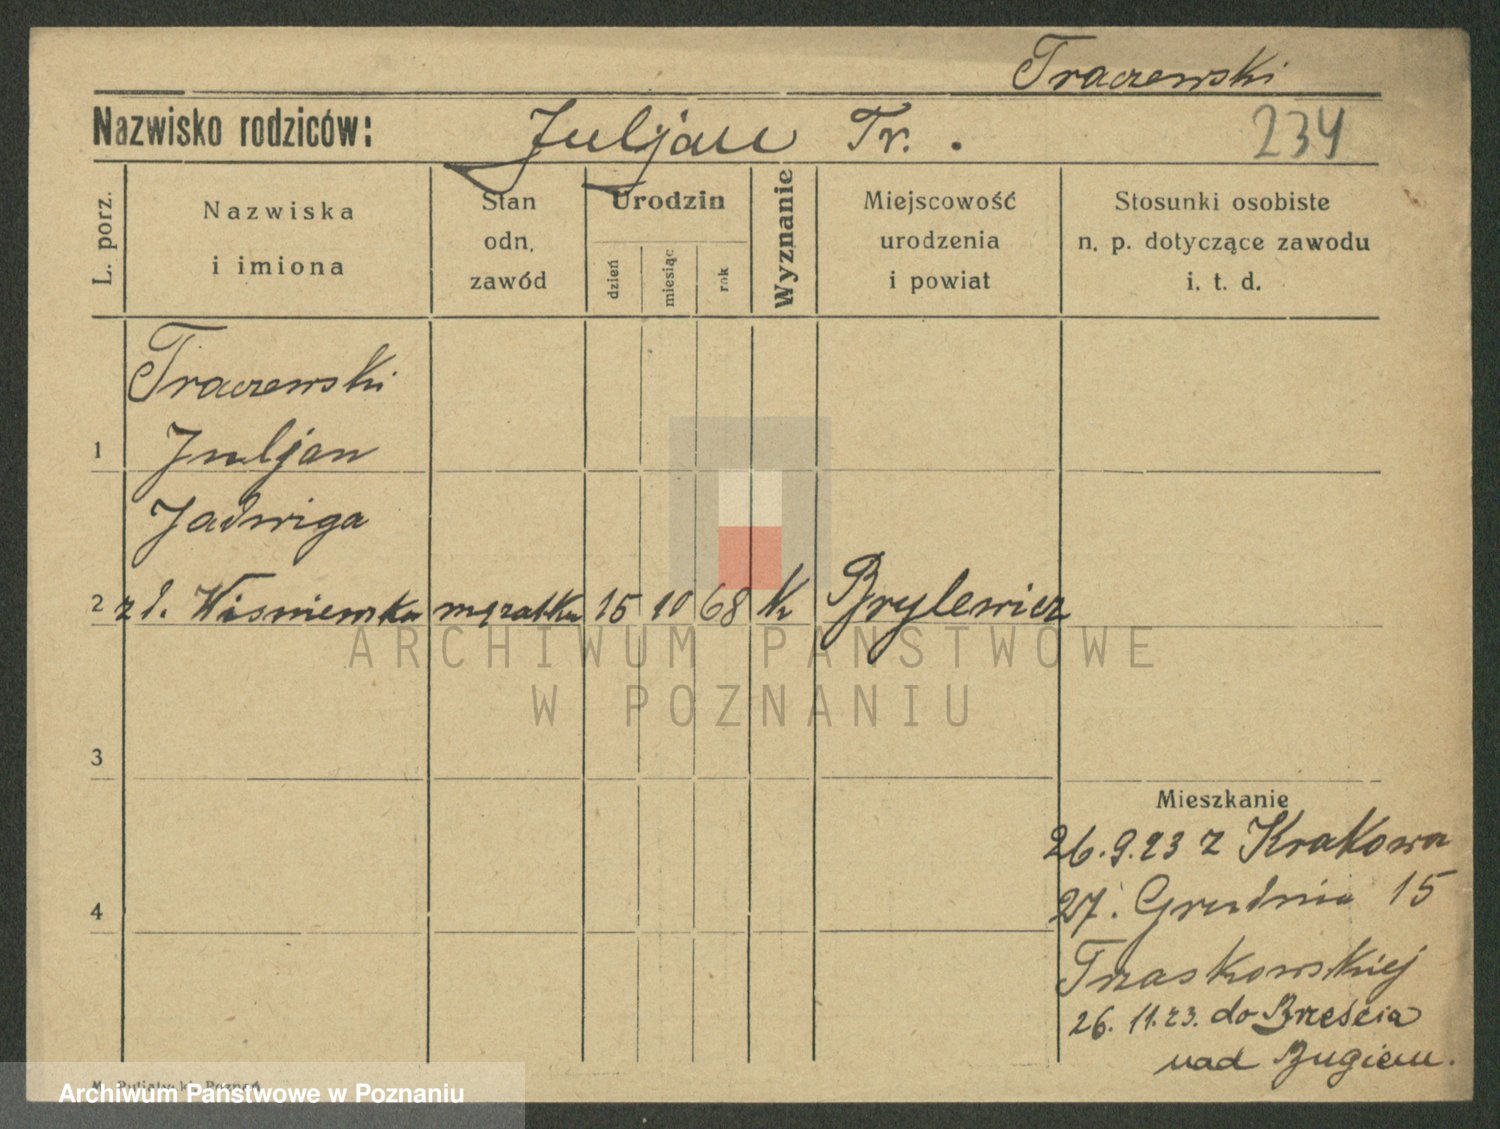 Traczewski
Nazwisko rodziców: Juljan Tr.
234
L. porz.
Nazwiska
i imiona
Stan
odn,
zawód
Urodzin
dzień
miesiąc
rok
Wyznanie
Miejscowość
urodzenia
i powiat
Stosunki osobiste
n. p. dotyczące zawodu
i. t. d.
Traczewski
1 Juljan
Jadwiga
2 z d. Wiśniewska mężatka 15 10 68 k Brylewicz
ARCHIWUM PAŃSTWOWE
W POZNANIU
3
Mieszkanie
26.9.23 z Krakowa
4
27. Grudnia 15
Traskowskiej
26.11.23. do Brześcia
nad Bugiem.
Poznań
Archiwum Państwowe w Poznaniu